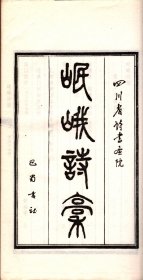 四川省詩書画院
岷峨詩稾
巴蜀書社